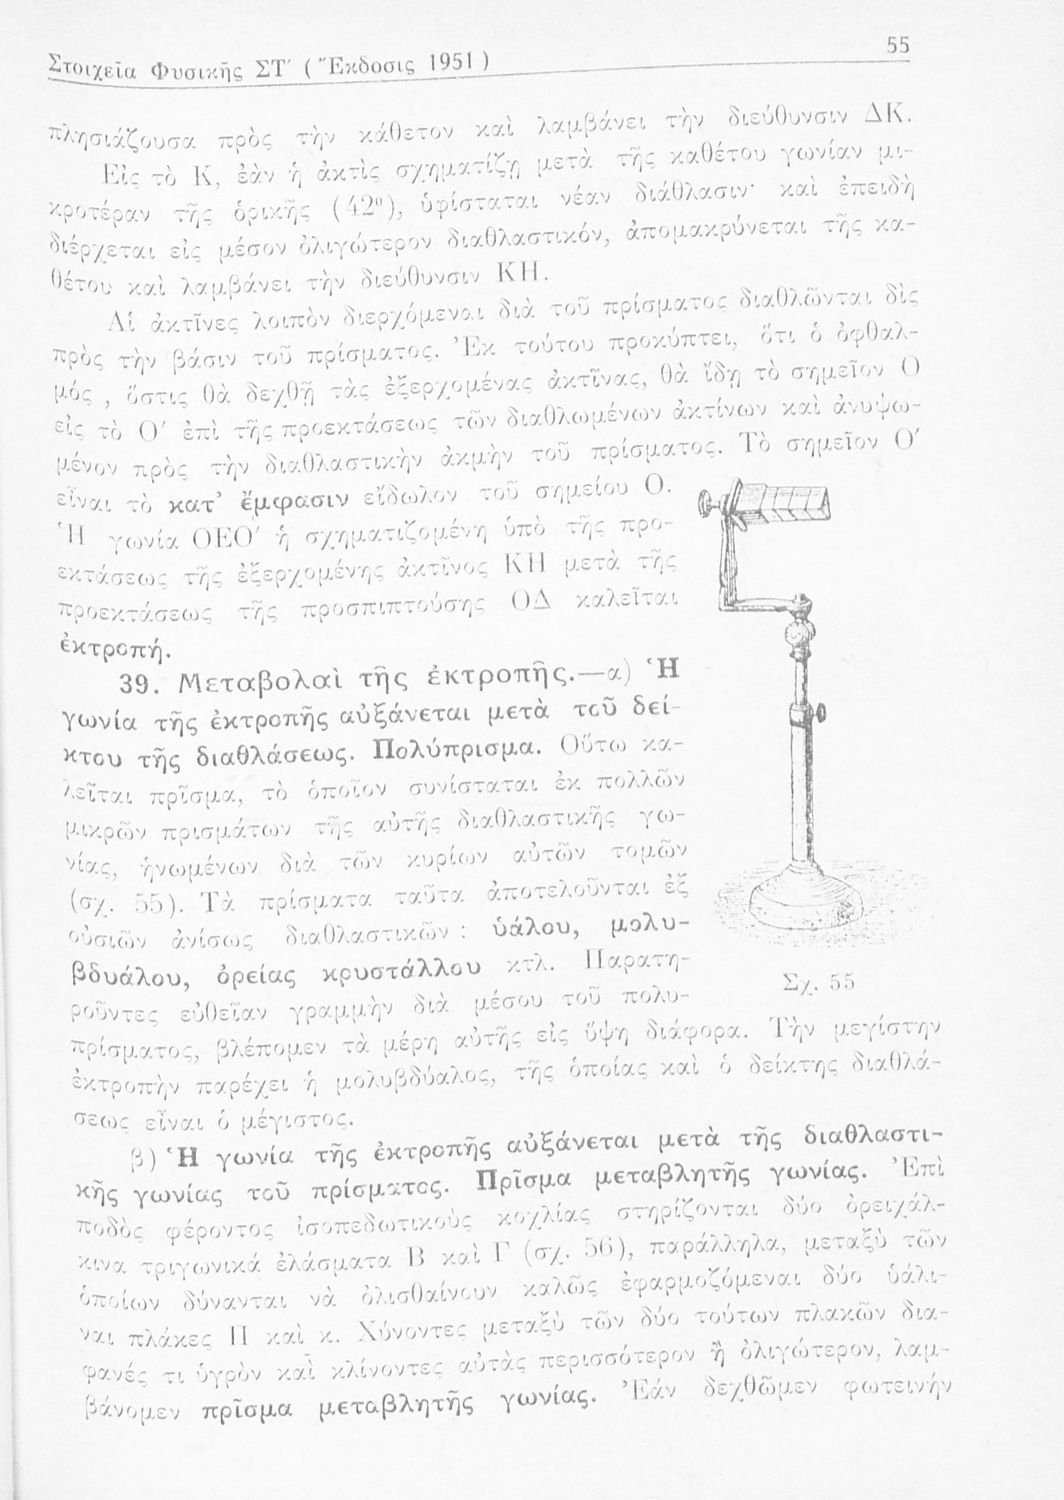 Στοιχεῖα Φυσικῆς ΣΤ′ ( Ἔκδοσις 1951 )
55
πλησιάζουσα πρὸς τὴν κάθετον καὶ λαμβάνει τὴν διεύθυνσιν ΔΚ.
Εἰς τὸ Κ, ἐὰν ἡ ἀκτὶς σχηματίζῃ μετὰ τῆς καθέτου γωνίαν μι-
κροτέραν τῆς ὁρικῆς (42⁰), ὑφίσταται νέαν διάθλασιν· καὶ ἐπειδὴ
διέρχεται εἰς μέσον ὀλιγώτερον διαθλαστικόν, ἀπομακρύνεται τῆς κα-
θέτου καὶ λαμβάνει τὴν διεύθυνσιν ΚΗ.
Αἱ ἀκτῖνες λοιπὸν διερχόμεναι διὰ τοῦ πρίσματος διαθλῶνται δὶς
πρὸς τὴν βάσιν τοῦ πρίσματος. Ἐκ τούτου προκύπτει, ὅτι ὁ ὀφθαλ-
μός , ὅστις θὰ δεχθῇ τὰς ἐξερχομένας ἀκτῖνας, θὰ ἴδῃ τὸ σημεῖον Ο
εἰς τὸ Ο′ ἐπὶ τῆς προεκτάσεως τῶν διαθλωμένων ἀκτίνων καὶ ἀνυψω-
μένον πρὸς τὴν διαθλαστικὴν ἀκμὴν τοῦ πρίσματος. Τὸ σημεῖον Ο′
εἶναι τὸ κατ’ ἔμφασιν εἴδωλον τοῦ σημείου Ο.
Ἡ γωνία ΟΕΟ′ ἡ σχηματιζομένη ὑπὸ τῆς προ-
εκτάσεως τῆς ἐξερχομένης ἀκτῖνος ΚΗ μετὰ τῆς
προεκτάσεως τῆς προσπιπτούσης ΟΔ καλεῖται
ἐκτροπή.
39. Μεταβολαὶ τῆς ἐκτροπῆς.—α) Ἡ
γωνία τῆς ἐκτροπῆς αὐξάνεται μετὰ τοῦ δεί-
κτου τῆς διαθλάσεως. Πολύπρισμα. Οὕτω κα-
λεῖται πρῖσμα, τὸ ὁποῖον συνίσταται ἐκ πολλῶν
μικρῶν πρισμάτων τῆς αὐτῆς διαθλαστικῆς γω-
νίας, ἡνωμένων διὰ τῶν κυρίων αὐτῶν τομῶν
(σχ. 55). Τὰ πρίσματα ταῦτα ἀποτελοῦνται ἐξ
οὐσιῶν ἀνίσως διαθλαστικῶν : ὑάλου, μολυ-
βδυάλου, ὀρείας κρυστάλλου κτλ. Παρατη-
ροῦντες εὐθεῖαν γραμμὴν διὰ μέσου τοῦ πολυ-
Σχ. 55
πρίσματος, βλέπομεν τὰ μέρη αὐτῆς εἰς ὕψη διάφορα. Τὴν μεγίστην
ἐκτροπὴν παρέχει ἡ μολυβδύαλος, τῆς ὁποίας καὶ ὁ δείκτης διαθλά-
σεως εἶναι ὁ μέγιστος.
β) Ἡ γωνία τῆς ἐκτροπῆς αὐξάνεται μετὰ τῆς διαθλαστι-
κῆς γωνίας τοῦ πρίσματος. Πρῖσμα μεταβλητῆς γωνίας. Ἐπὶ
ποδὸς φέροντος ἰσοπεδωτικοὺς κοχλίας στηρίζονται δύο ὀρειχάλ-
κινα τριγωνικά ἐλάσματα Β καὶ Γ (σχ. 56), παράλληλα, μεταξὺ τῶν
ὁποίων δύνανται νὰ ὀλισθαίνουν καλῶς ἐφαρμοζόμεναι δύο ὑάλι-
ναι πλάκες Π καὶ κ. Χύνοντες μεταξὺ τῶν δύο τούτων πλακῶν δια-
φανές τι ὑγρὸν καὶ κλίνοντες αὐτὰς περισσότερον ἢ ὀλιγώτερον, λαμ-
βάνομεν πρῖσμα μεταβλητῆς γωνίας. Ἐάν δεχθῶμεν φωτεινήν